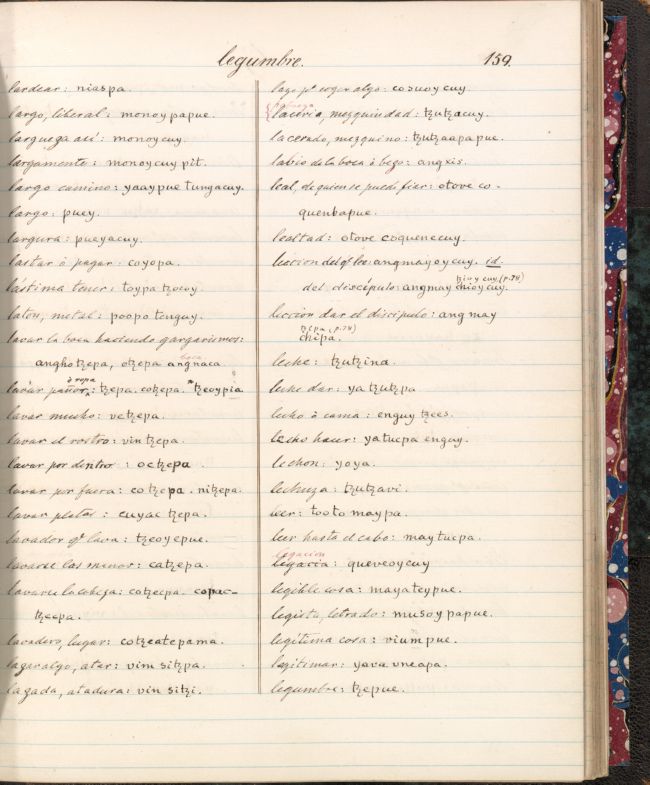 legumbre.
159.
lardear: niaspa.
largo, liberal: monoy papue.
largueza así: monoycuy.
largamente: monoycuy pit.
largo camino: yaaypue tungacuy.
largo: puey.
largura: pueyacuy.
lastar ò pagar: coyopa.
lástima tener: toypa tzocoy.
laton, metal: poopo tenguy.
lavar la boca haciendo gargarismos:
boca
anghotzepa, otzepa angnaca.
ò ropa
lavar paños: tzepa. cotzepa. tzeoypia
lavar mucho: vetzepa.
lavar el rostro: vin tzepa.
lavar por dentro: octzepa.
lavar por fuera: cotzepa. nitzepa.
lavar platos: cuyac tzepa.
lavador qe lava: tzeoyepue.
lavarse las manos: catzepa.
lavarse la cabeza: cotzecpa. copac-
tzecpa.
lavadero, lugar: cotzeatepama.
lazar algo, atar: vim sitzpa.
lazada, atadura: vin sitzi.
lazo pa coger algo: cozuoy cuy.
laceria, mezquindad: tzutzacuy.
lacerado, mezquino: tzutzaapapue.
labio de la boca ò bezo: angxis.
leal, de quien se puede fiar: otove co-
quenbapue.
lealtad: otove coquenecuy.
leccion del qe lee: angmayoycuy. id.
tzioycuy (p. 78)
del discípulo: angmay chioycuy.
leccion dar el discipulo: angmay
tzepa (p. 78)
chipa.
leche: tzutzina.
leche dar: ya tzutzpa
lecho ò cama: enguy tzees.
lecho hacer: yatucpa enguy.
lechon: yoya.
lechuza: tzutzavi.
leer: tooto maypa.
leer hasta el cabo: maytucpa.
legacion
legacia: queveoycuy
legible cosa: mayateypue.
legista, letrado: musoy papue.
legítima cosa: viumpue.
legitimar: yava vneapa.
legumbre: tzepue.